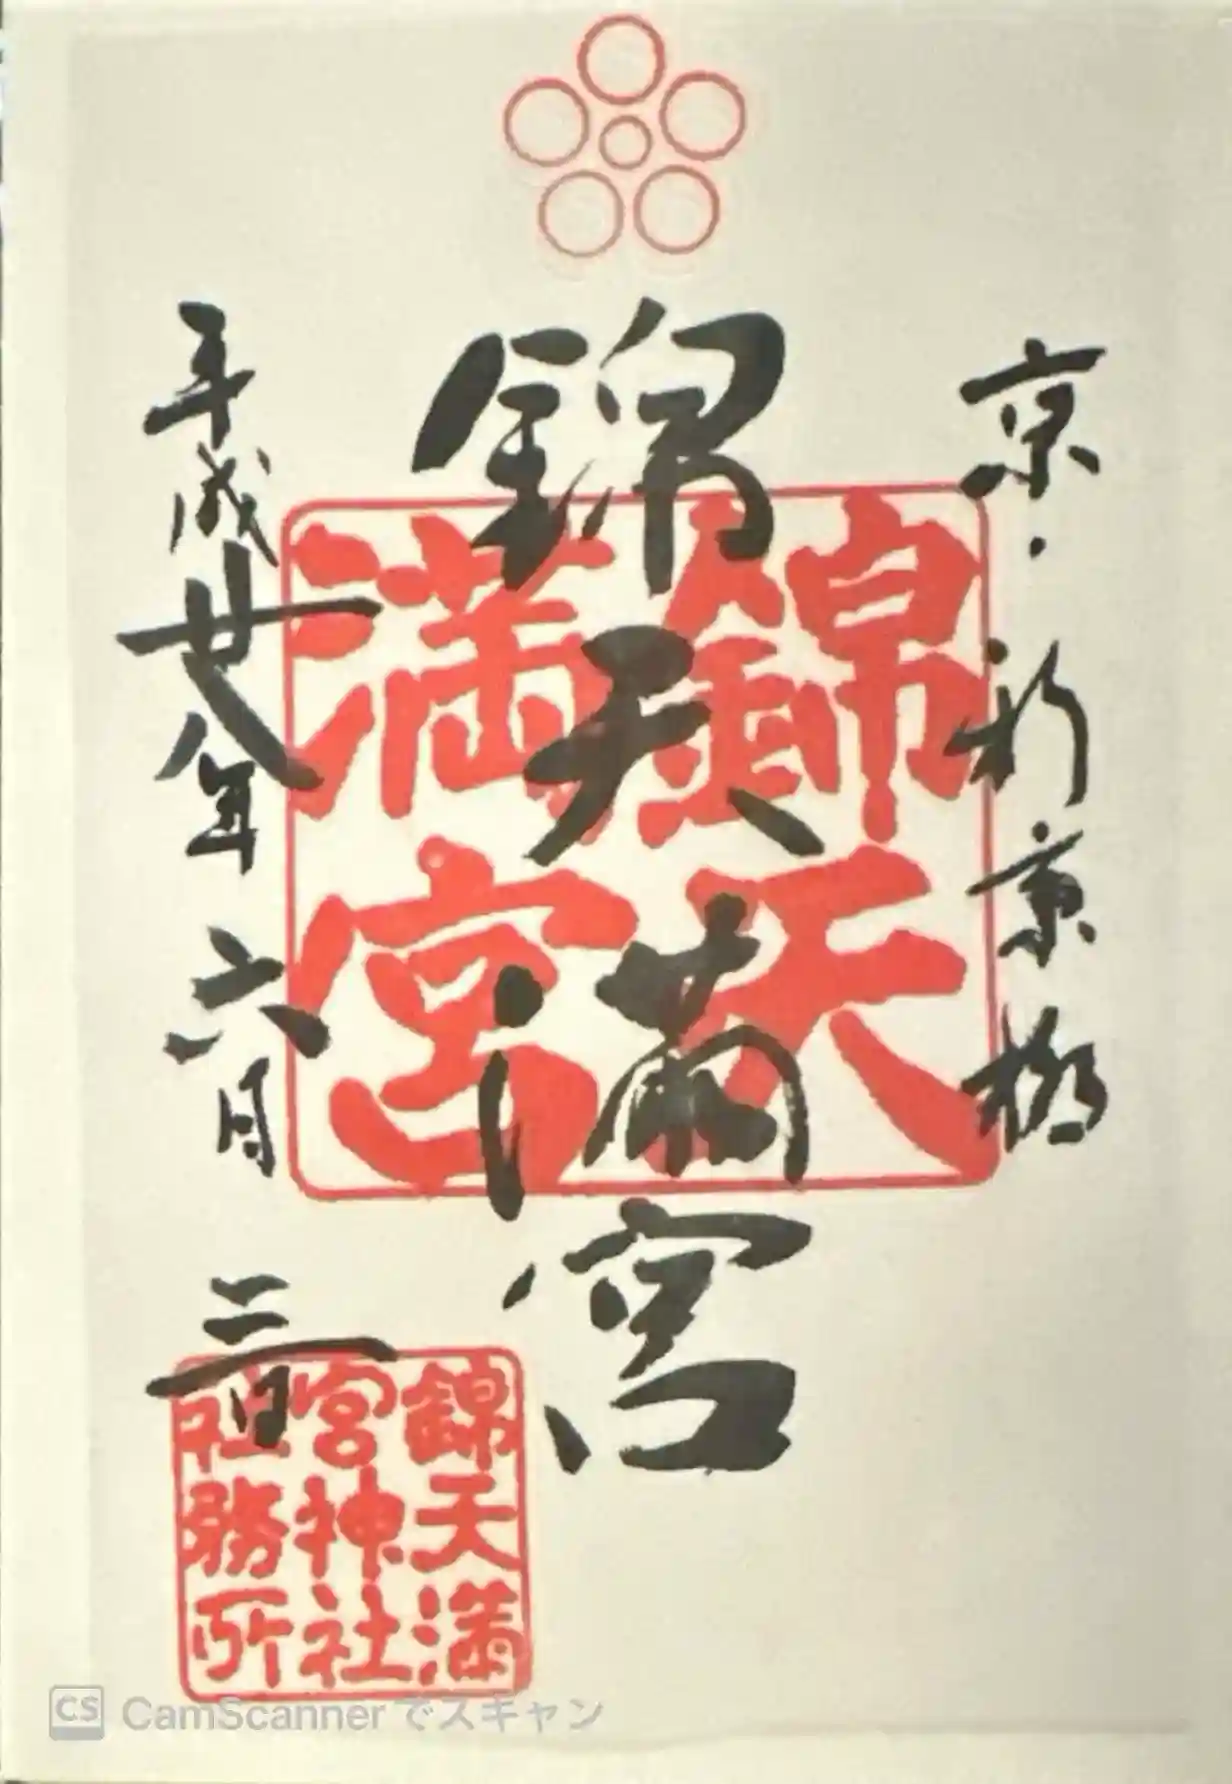 京・新京極
錦天満宮
平成廿八年六月三日
錦天満宮
錦天満宮神社社務所
CS CamScannerでスキャン